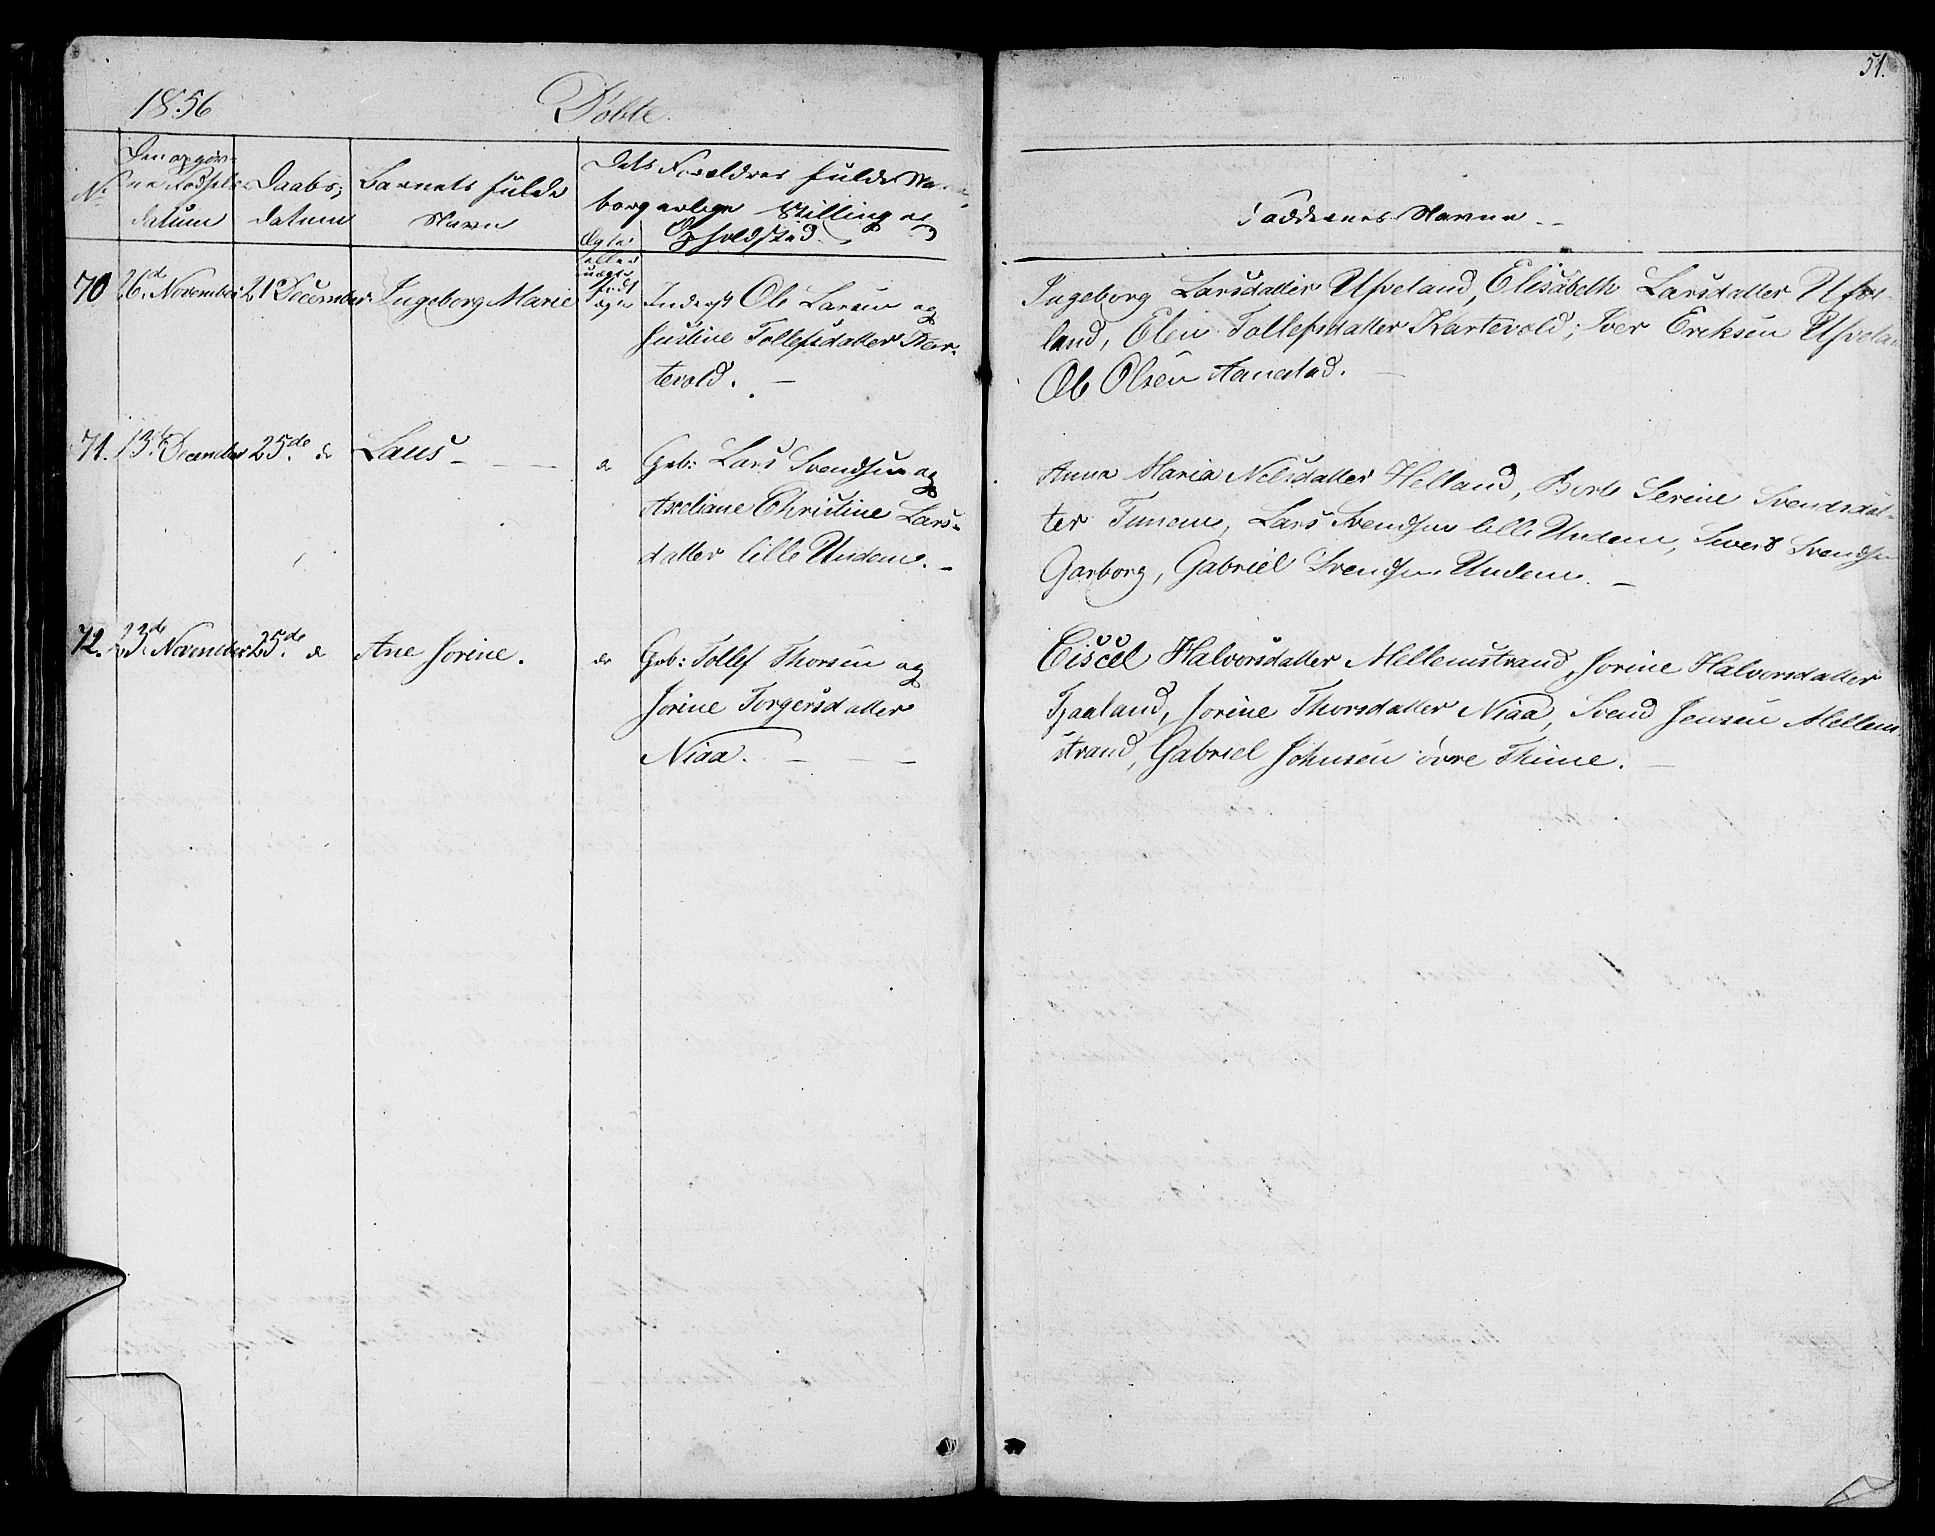 51.
1856 Døbte.
No. Den opgivne Fødselsdatum
Daabsdatum
Barnets fulde Navn
Dets Forældres fulde Navne, borgerlige Stilling og Opholdsted
Ægte eller uægte født
Faddernes Navne
70 26d November 21 December Ingeborg Marie ægte Inderst Ole Larsen og
Justine Tollefsdatter Kar-
tevold.
Ingeborg Larsdatter Ufseland, Elisabeth Larsdatter Ufse-
land, Elen Tollefsdatter Kartevold; Iver Ereksen Ufselan
Ole Olsen Aanestad.
71. 13de December 25de d Laus d Grb: Lars Svendsen og
Axeliane Christine Lars-
datter lille Undem.
Anna Maria Nelsdatter Helland, Berte Serine Svendsdat-
ter Tunem, Lars Svendsen lille Undem, Sivert Svendsen
Garborg, Gabriel Svendsen Undem.
72. 23de November 25de d Ane Jorine. do Grb: Tollef Thorsen og
Jorine Torgersdatter
Niaa.
Eiscel Halvorsdatter Mellemstrand, Jorine Halvorsdatter
Tjaaland, Jorine Thorsdatter Niaa, Svend Jensen Mellem
strand, Gabriel Johnsen övre Thime.